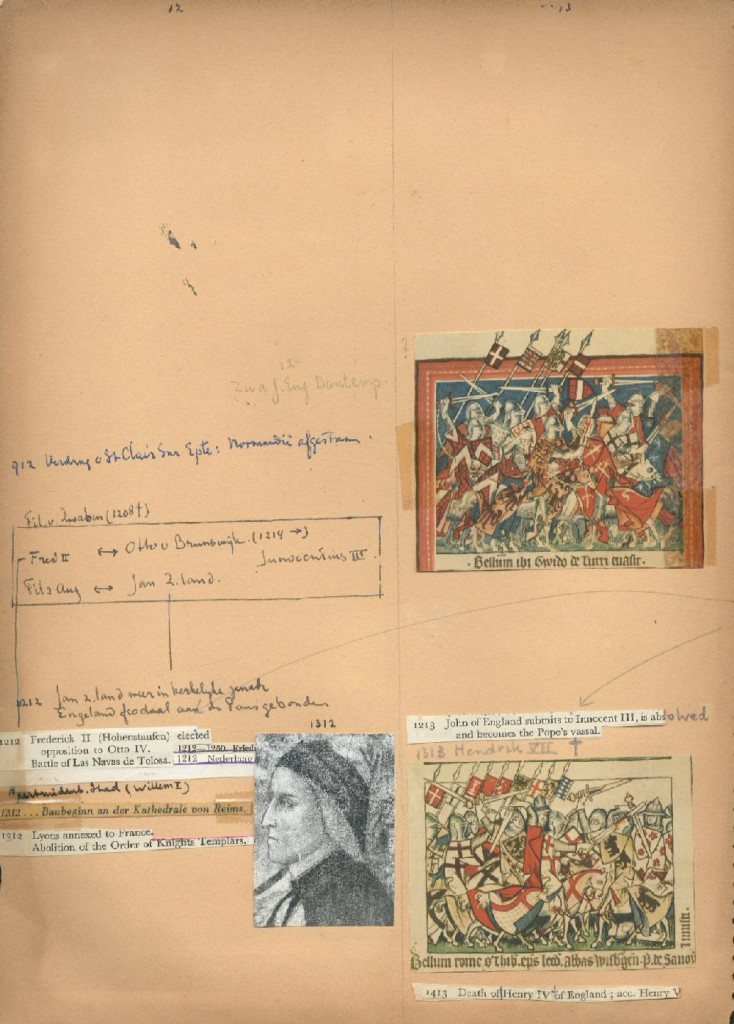 12
13
12
912 Verdrag v St Clair Sur Epte: Normandië afgestaan.
Fil. v. Zwaben (1208†)
Fred II ↔ Otto v Brunswijk (1214 →)
Innocentius III.
Fil 2 Aug ↔ Jan Z. land.
1212 Jan z. land weer in kerkelijke genade
Engeland feodaal aan de Paus gebonden
1212 Frederick II (Hohenstaufen) elected
opposition to Otto IV.
1212-1250. Friedr
Battle of Las Navas de Tolosa.
1212 Nederlaag
stad (Willem I)
1212 ... Baubeginn an der Kathedrale von Reims.
1312 Lyons annexed to France.
Abolition of the Order of Knights Templars.
1312
?
· Bellum ibi Gwido de Turri euasit ·
1213 John of England submits to Innocent III, is absolved
and becomes the Pope's vassal.
1313 Hendrik VII †
Bellum rome
eps leod. abbas
p. de Sauoy
1413 Death of Henry IV of England; acc. Henry V